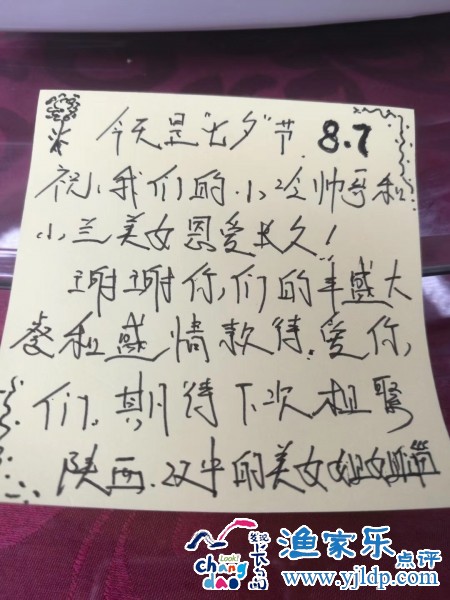 今天是"七夕"节 8.7
祝我们的小冷帅哥和
小兰美女恩爱长久!
谢谢你们的丰盛大
餐和盛情款待.爱你
们.期待下次相聚
陕西.汉中的美女姐姐
Look!
chang
dao
渔家乐点评
www.yjldp.com